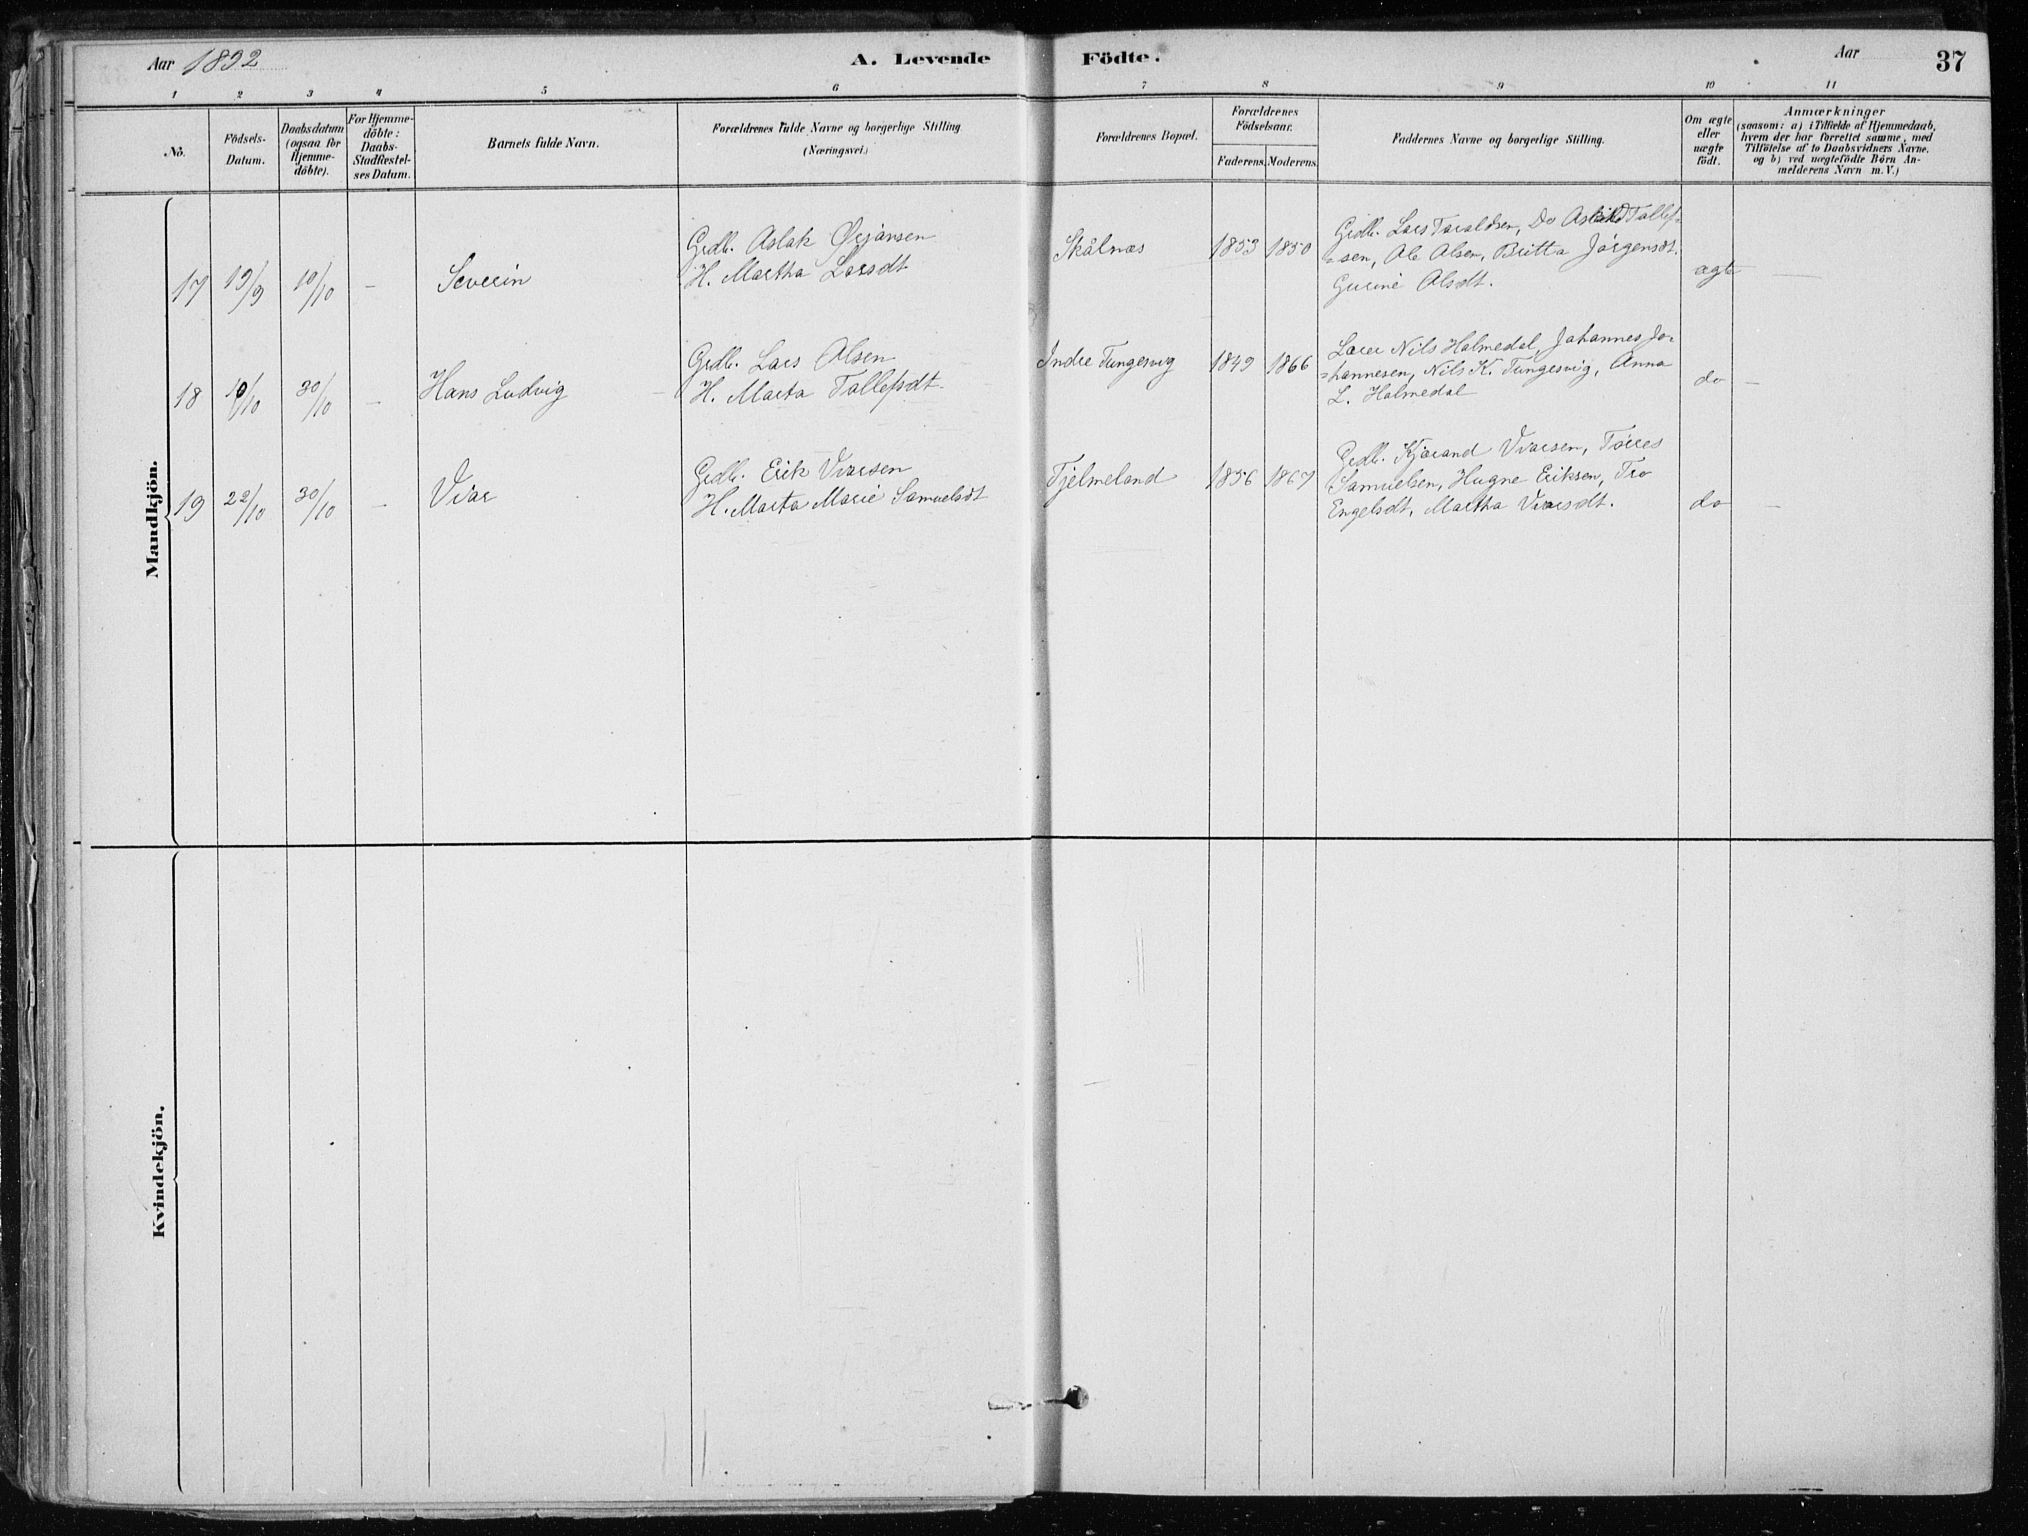 Aar 1892
A. Levende Födte.
Aar
37
1 2 3 4 5 6 7 8 9 10 11
No.
Födsels-
Datum.
Daabsdatum
(ogsaa for
Hjemme-
döbte).
For Hjemme-
döbte:
Daabs-
Stadfæstel-
ses Datum.
Barnets fulde Navn.
Forældrenes fulde Navne og borgerlige Stilling
(Næringsvei.)
Forældrenes Bopæl.
Forældrenes
Födselsaar.
Faderens. Moderens.
Faddernes Navne og borgerlige Stilling.
Om ægte
eller
uægte
födt.
Anmærkninger
(saasom: a) i Tilfælde af Hjemmedaab,
hvem der har forrettet samme, med
Tilföielse af to Daabsvidners Navne,
og b) ved uægtefödte Börn An-
melderens Navn m. V.)
Mandkjön.
17 19/9 10/10 - Severin
Grdb. Aslak Ørjansen
H. Martha Larsdt
Skålnæs 1853 1850
Grdb. Lars Taraldsen, Do Tollef-
=sen, Ole Olsen, Britta Jørgensdt.
Gurine Olsdt.
ægte
18 10/10 30/10 - Hans Ludvig
Grdb. Lars Olsen
H. Marta Tollefsdt
Indre Tungesvig 1849 1866
Lærer Nils Holmedal, Johannes Jo-
=hannesen, Nils K. Tungesvig, Anna
L. Holmedal
do -
19 22/10 30/10 - Ivar
Grdb. Erik Ivarsen
H. Marta Marie Samuelsdt
Fjelmeland 1856 1867
Grdb. Kjørand Ivarsen, Tørres
Samuelsen, Hugne Eriksen, Tro
Engelsdt, Martha Ivarsdt.
do -
Kvindekjön.